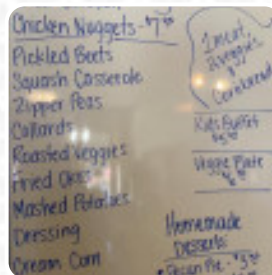 Chicken Nuggets - $7
Pickled Beets
Squash Casserole
Zipper Peas
Collards
Roasted veggies
Fried Okra
Mashed Potatoes
Dressing
Cream Corn
1 meat,
2 veggies
Cornbread
Kids Buffet
Veggie Plate
Homemade
Desserts:
Pecan Pie - $3